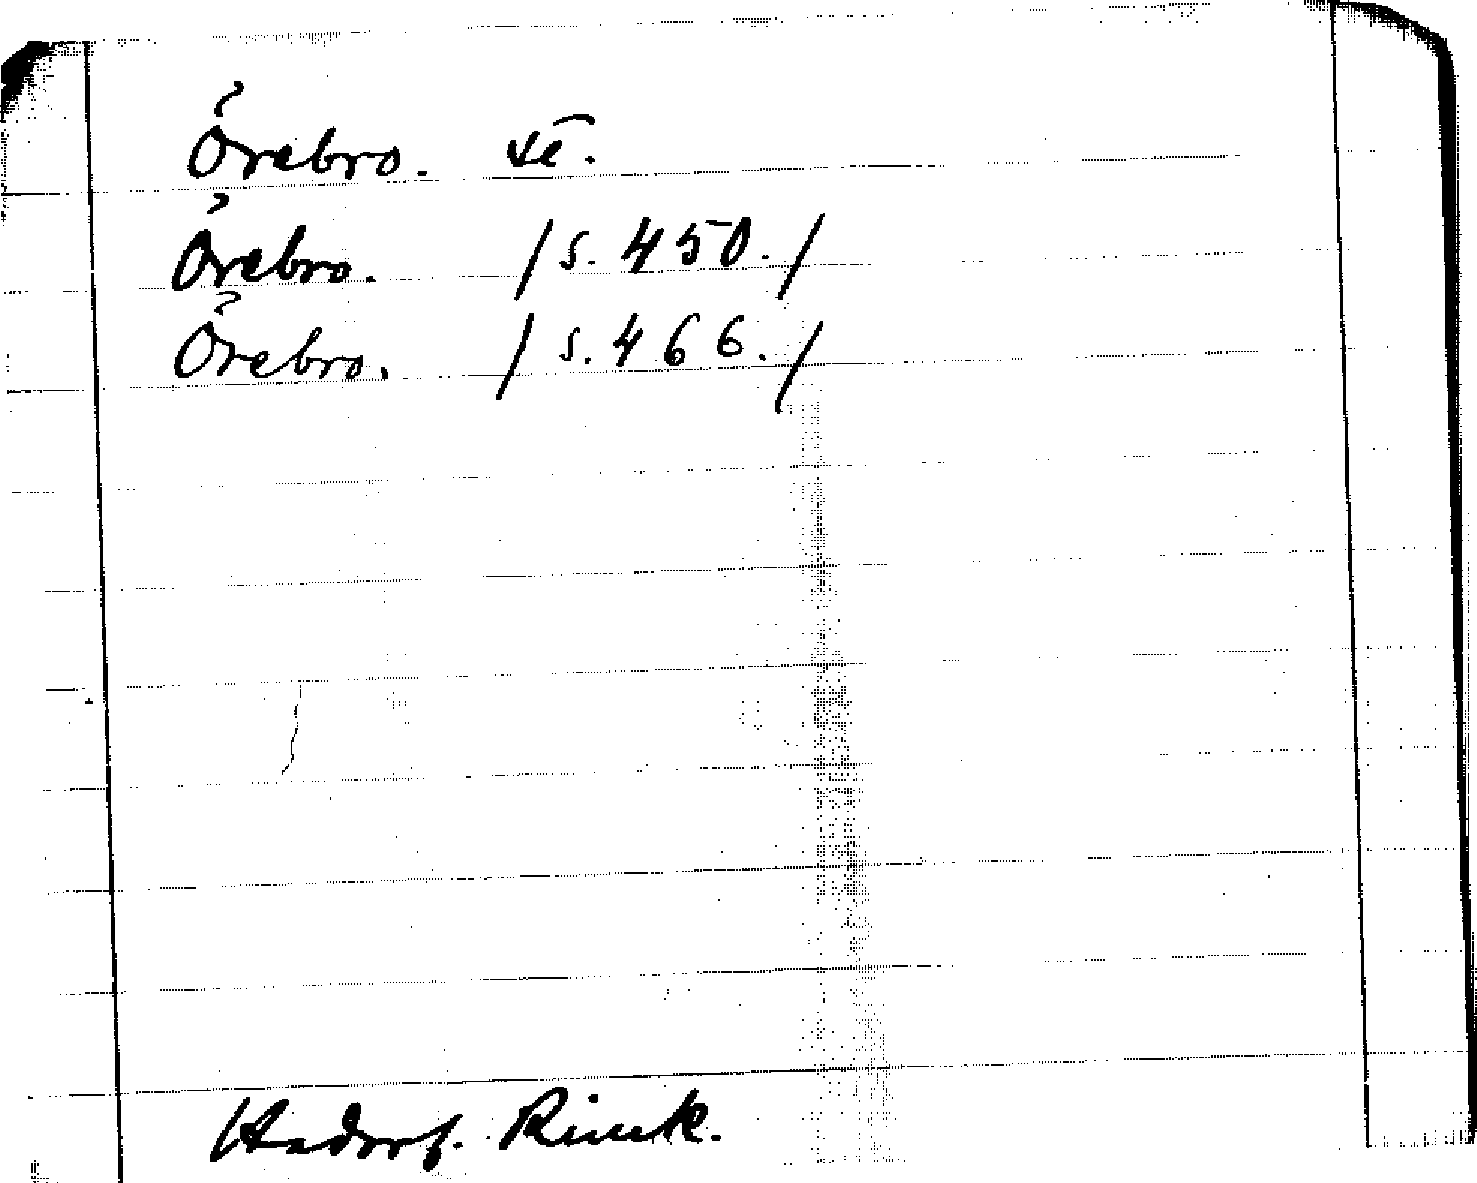 Örebro. sē.
Örebro. /s. 450./
Örebro. /s. 466./
Hadorf. Rimk.